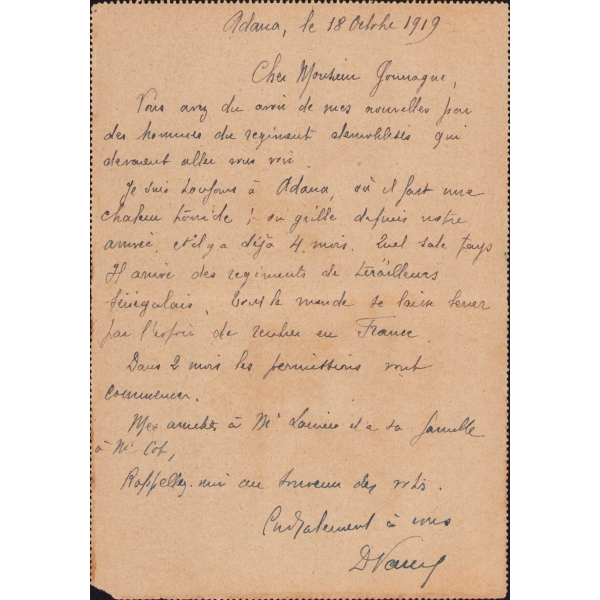 Adana, le 18 Octobre 1919
Cher Monsieur
Vous avez du avoir de mes nouvelles par
des hommes du regiment demobilisés qui
devaient aller vous voir.
Je suis toujours à Adana, où il fait une
chaleur torride ; on grille depuis notre
arrivée, et il y a déjà 4 mois. Quel sale pays
Il arrive des regiments de tirailleurs
Sénégalais. Tout le monde se laisse berner
par l'espoir de rentrer en France.
Dans 2 mois les permissions vont
commencer.
Mes amitiés à Mr et à sa famille
à Mr
Rappellez-moi au souvenir des
Cordialement à vous